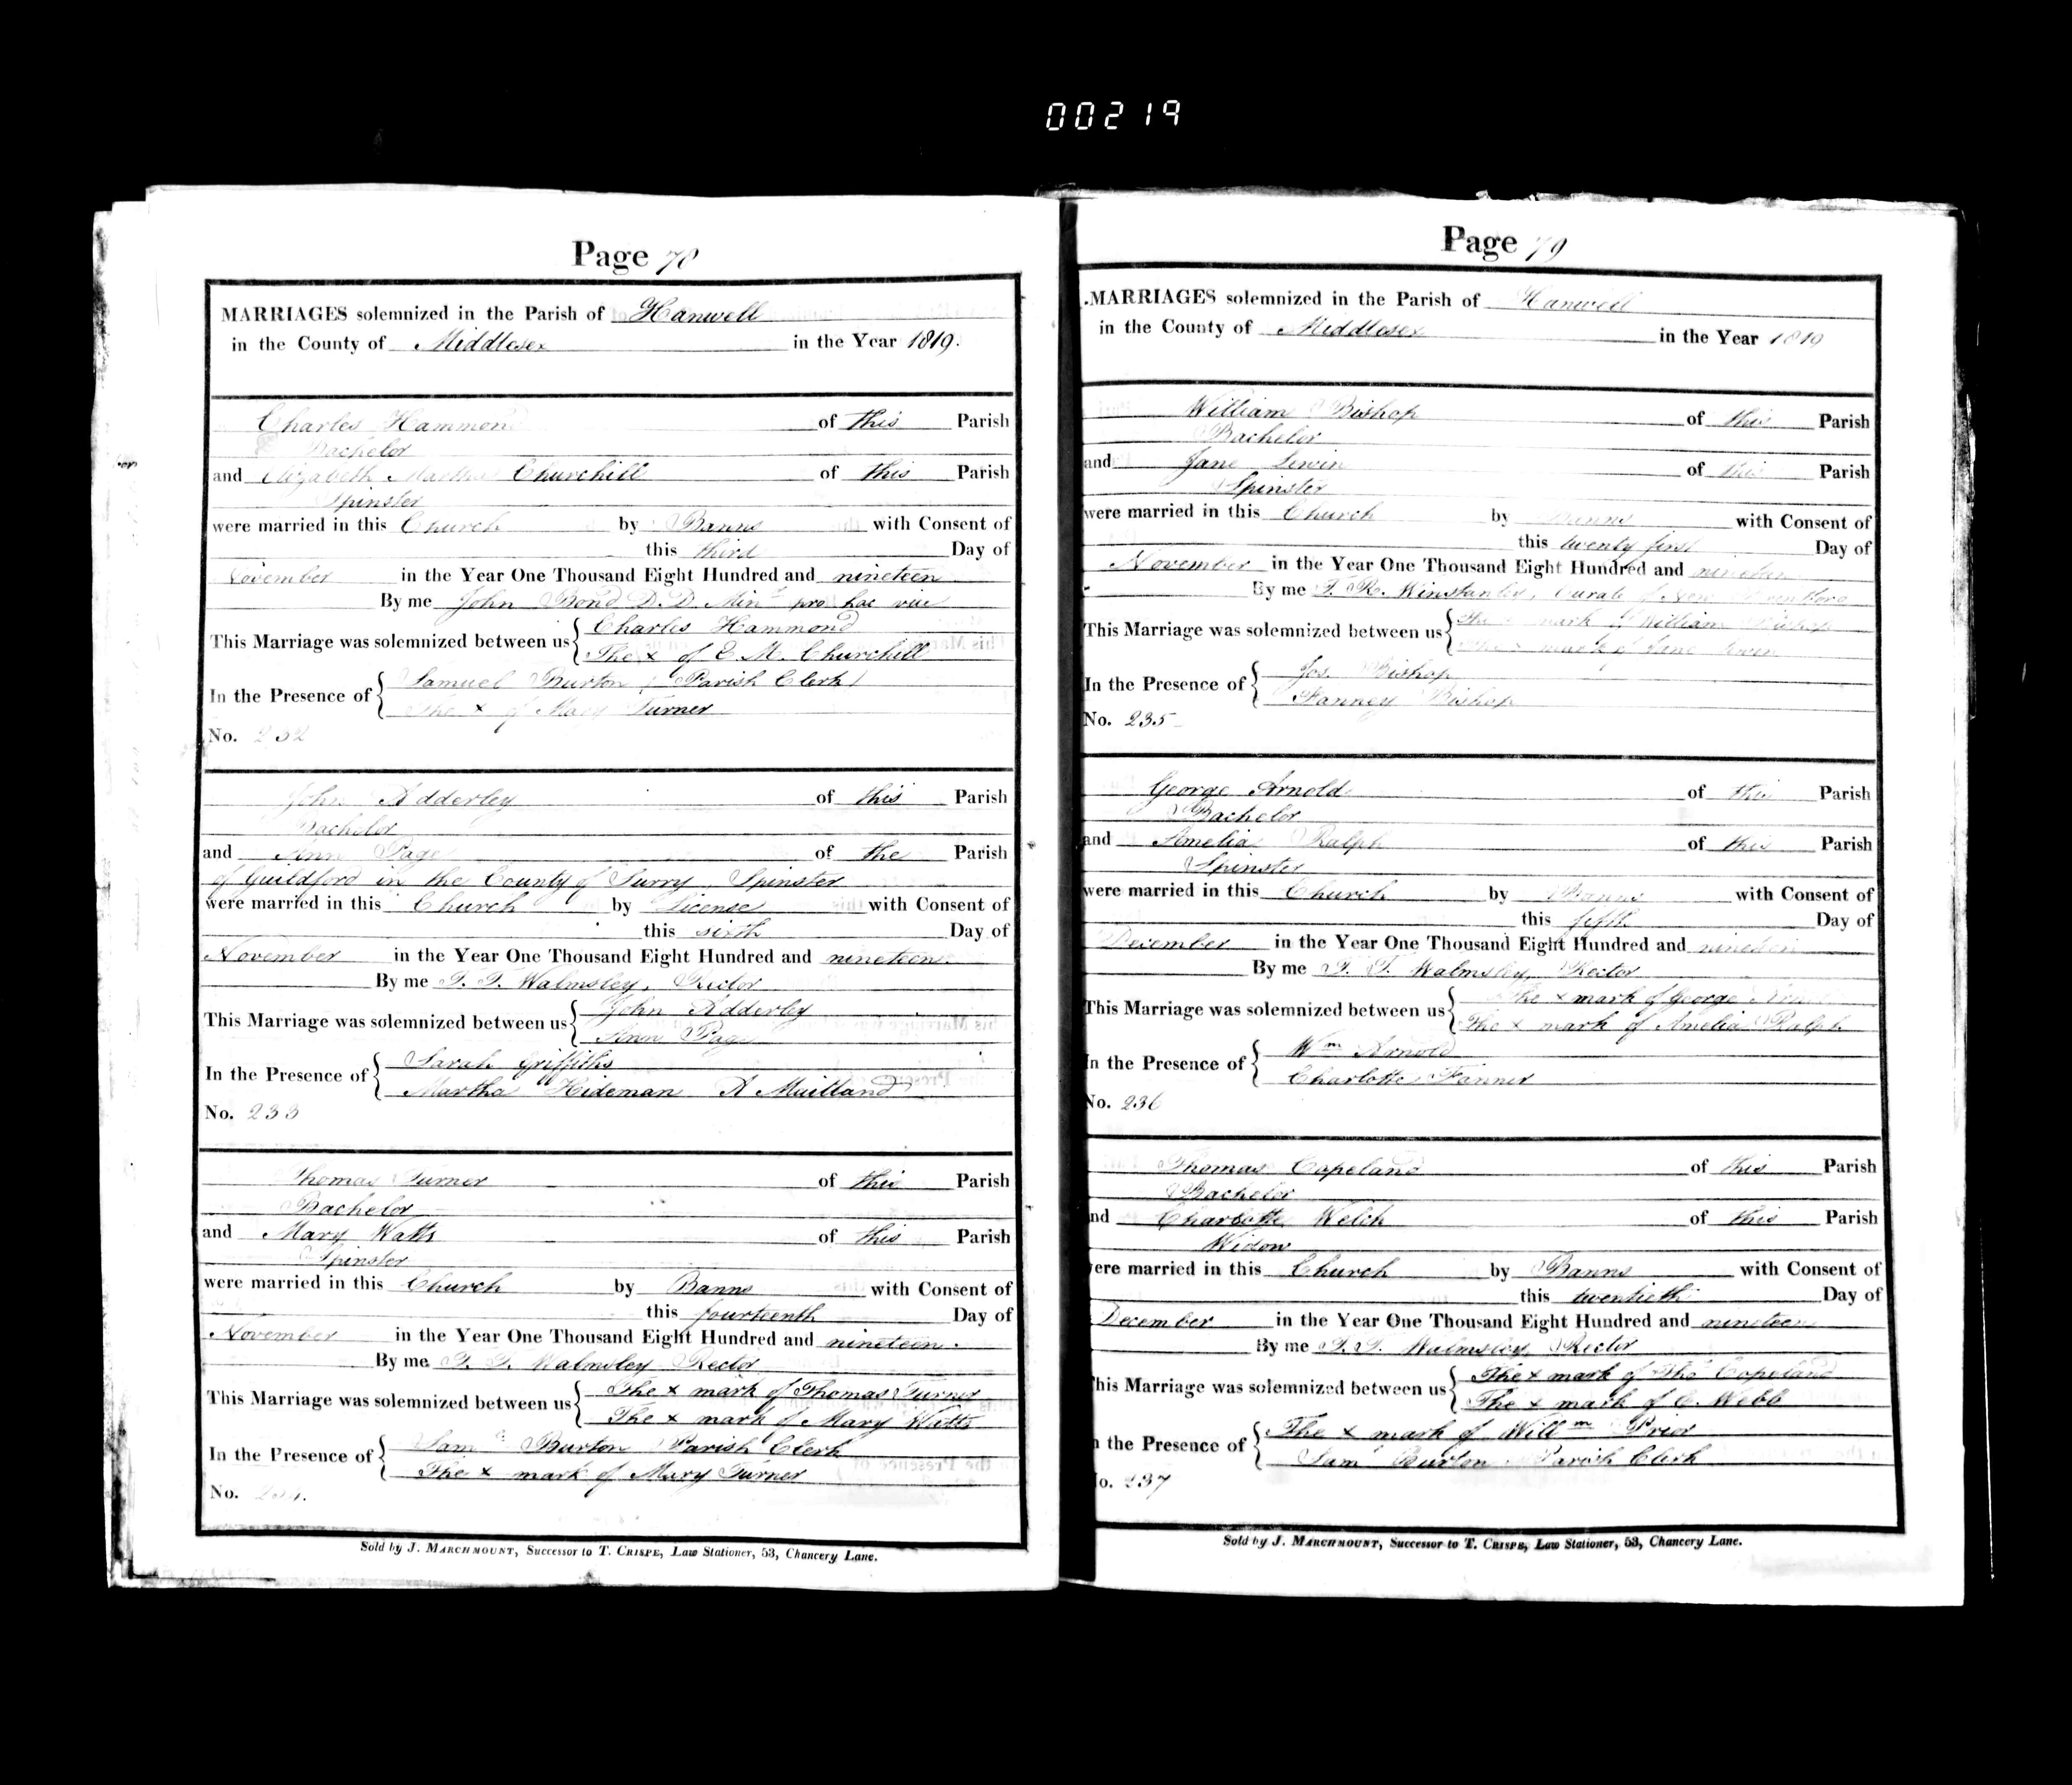 00219
Page 78
MARRIAGES solemnized in the Parish of Hanwell
in the County of Middlesex in the Year 1819.
Charles Hammond of this Parish
Bachelor
and Elizabeth Martha Churchill of this Parish
Spinster
were married in this Church by Banns with Consent of
this third Day of
November in the Year One Thousand Eight Hundred and nineteen
By me John Bond D.D. Minr pro hac vice
This Marriage was solemnized between us { Charles Hammond
The x of E. M. Churchill
In the Presence of { Samuel Burton (Parish Clerk)
The x of Mary Turner
No. 232
John Adderley of this Parish
Bachelor
and Ann Page of the Parish
of Guildford in the County of Surry, Spinster
were married in this Church by License with Consent of
this sixth Day of
November in the Year One Thousand Eight Hundred and nineteen.
By me T. T. Walmsley, Rector
This Marriage was solemnized between us { John Adderley
Ann Page
In the Presence of { Sarah Griffiths
Martha Hideman A Muitland
No. 233
Thomas Turner of this Parish
Bachelor
and Mary Watts of this Parish
Spinster
were married in this Church by Banns with Consent of
this fourteenth Day of
November in the Year One Thousand Eight Hundred and nineteen.
By me T. T. Walmsley Rector
This Marriage was solemnized between us { The x mark of Thomas Turner
The x mark of Mary Watts
In the Presence of { Saml Burton Parish Clerk
The x mark of Mary Turner
No. 234.
Sold by J. MARCHMOUNT, Successor to T. CRISPE, Law Stationer, 53, Chancery Lane.
Page 79
MARRIAGES solemnized in the Parish of Hanwell
in the County of Middlesex in the Year 1819
William Bishop of this Parish
Bachelor
and Jane Lewin of this Parish
Spinster
were married in this Church by Banns with Consent of
this twenty first Day of
November in the Year One Thousand Eight Hundred and nineteen
By me T. R. Winstanley, Curate of New Brentford
This Marriage was solemnized between us { The x mark of William Bishop
The x mark of Jane Lewin
In the Presence of { Jos. Bishop
Fanney Bishop
No. 235
George Arnold of this Parish
Bachelor
and Amelia Ralph of this Parish
Spinster
were married in this Church by Banns with Consent of
this fifth Day of
December in the Year One Thousand Eight Hundred and nineteen
By me T. T. Walmsley, Rector
This Marriage was solemnized between us { The x mark of George Arnold
The x mark of Amelia Ralph
In the Presence of { Wm Arnold
Charlotte Fanner
No. 236
Thomas Copeland of this Parish
Bachelor
and Charlotte Welch of this Parish
Widow
were married in this Church by Banns with Consent of
this twentieth Day of
December in the Year One Thousand Eight Hundred and nineteen
By me T. T. Walmsley, Rector
This Marriage was solemnized between us { The x mark of Thos Copeland
The x mark of C. Webb
In the Presence of { The x mark of Willm Prior
Saml Burton Parish Clerk
No. 237
Sold by J. MARCHMOUNT, Successor to T. CRISPE, Law Stationer, 53, Chancery Lane.